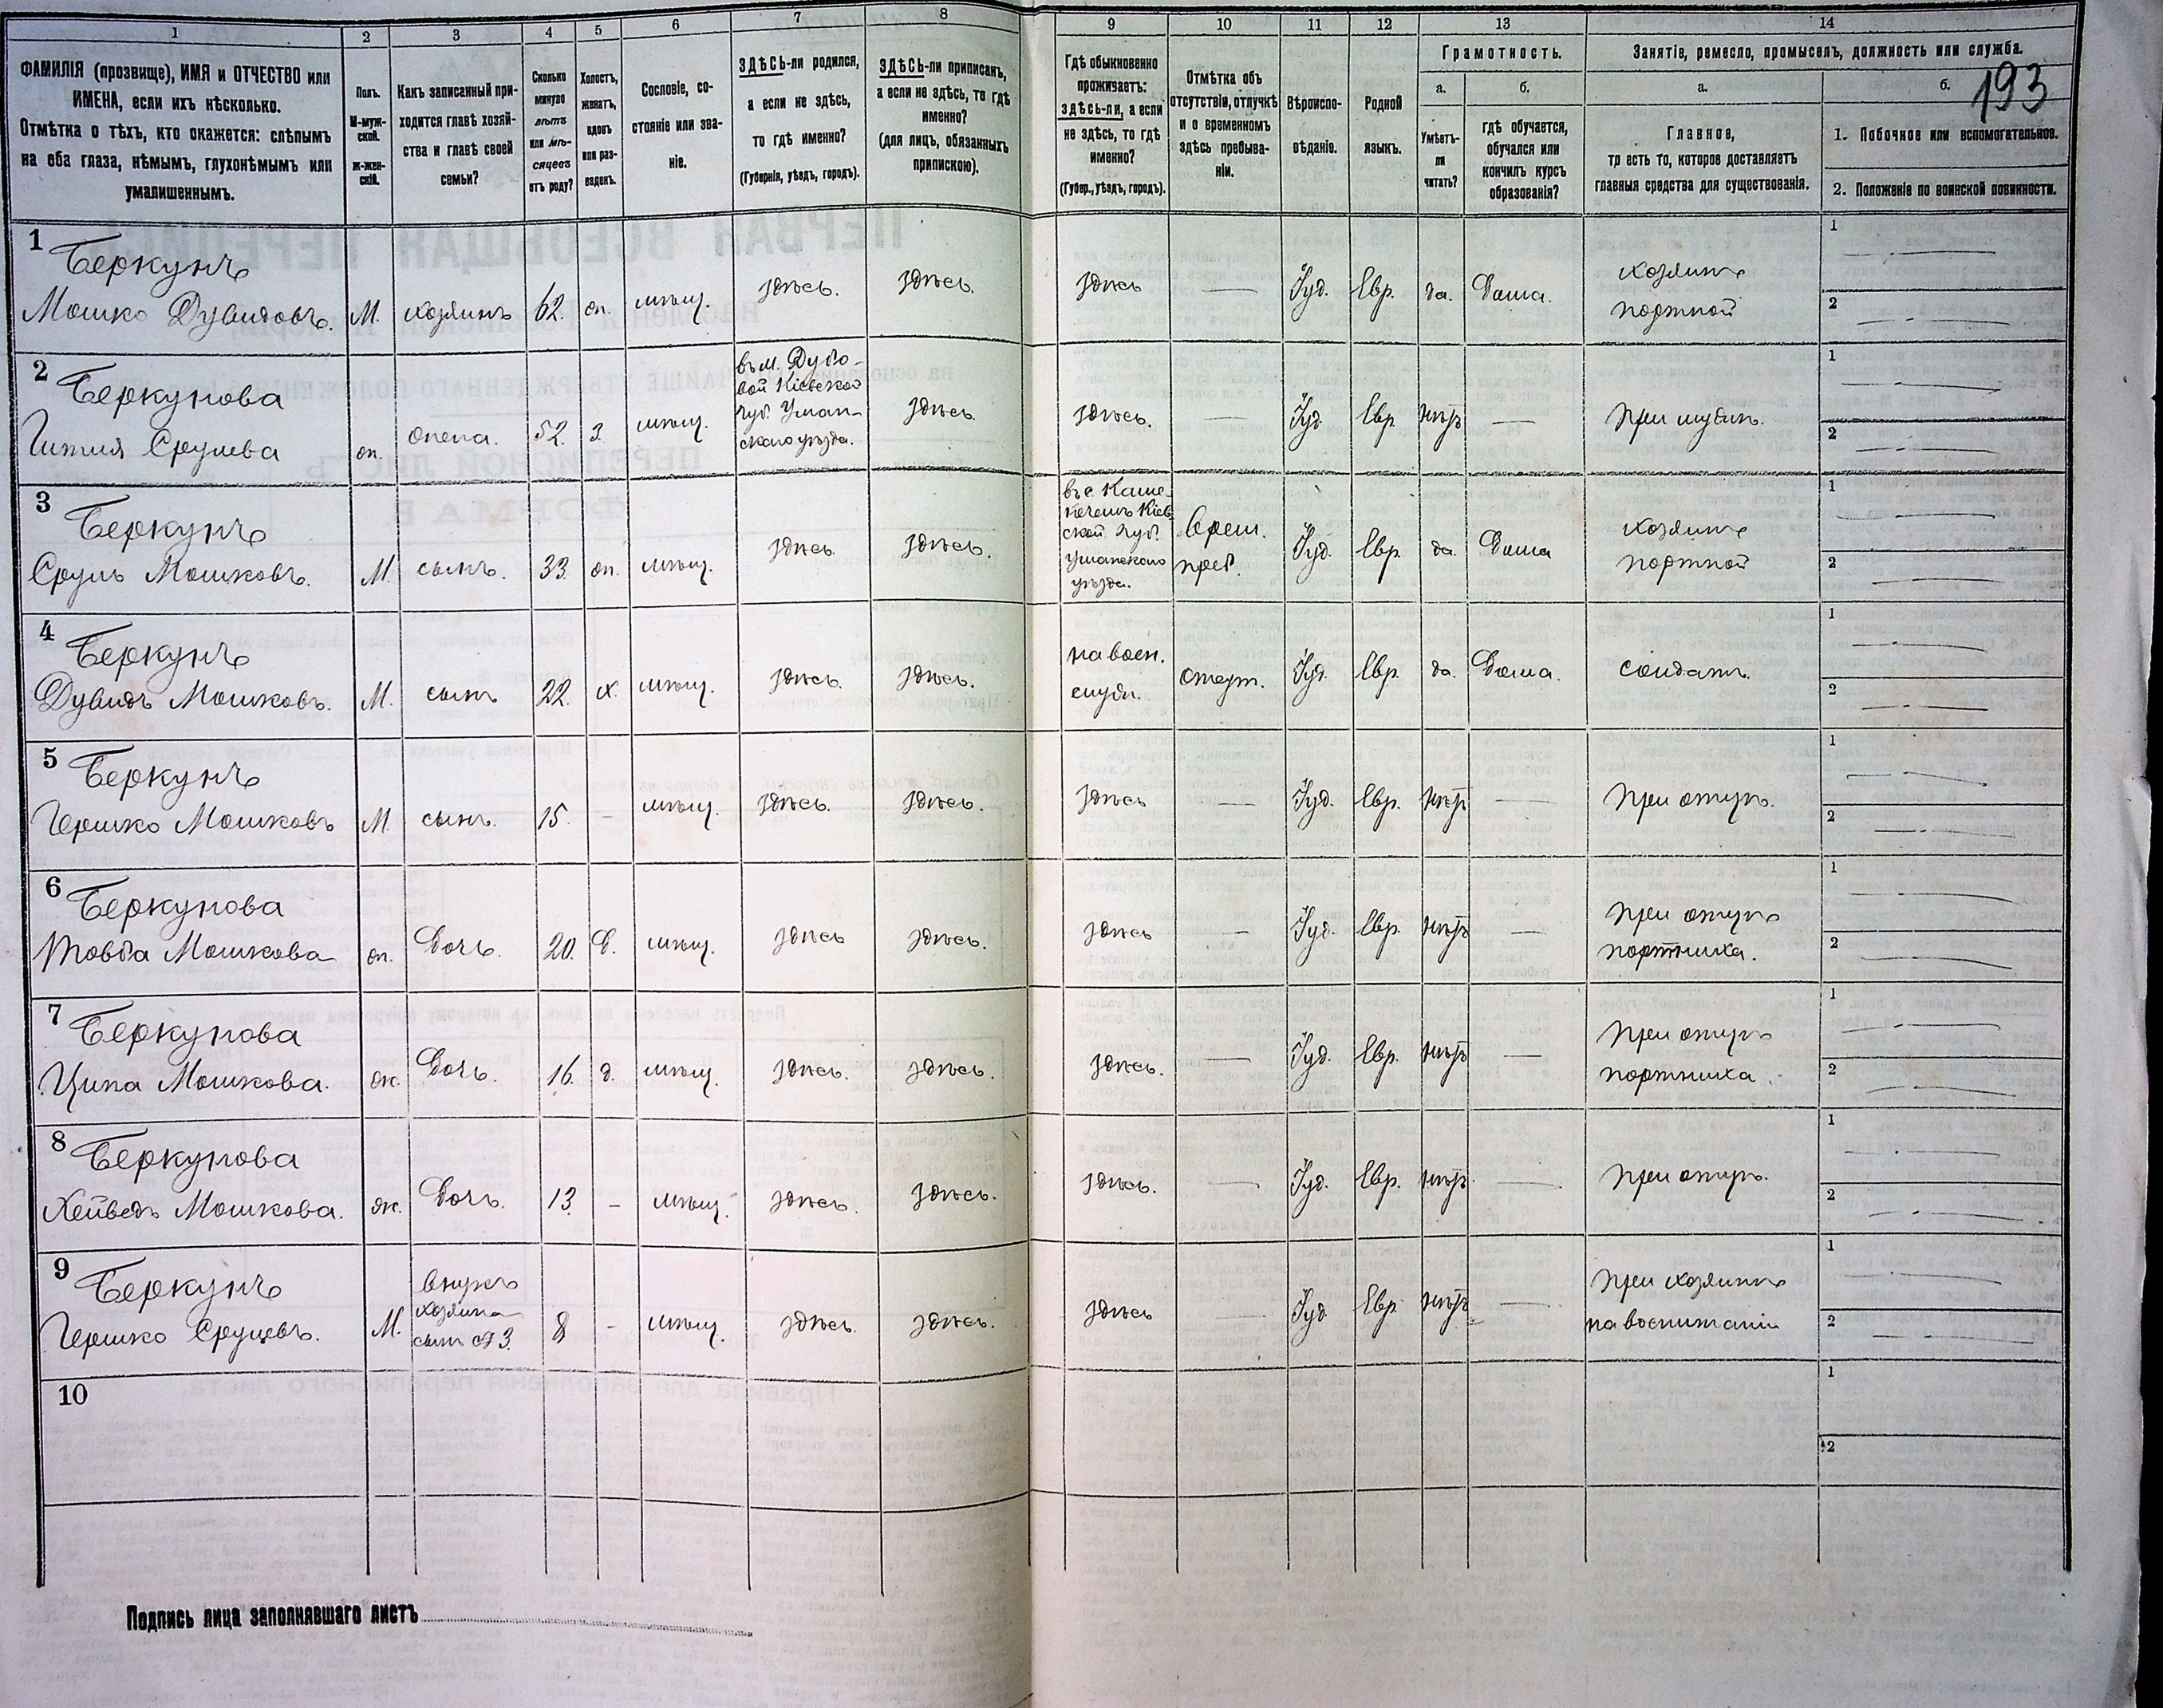 1 2 3 4 5 6 7 8 9 10 11 12 13 14
193
ФАМИЛІЯ (прозвище), ИМЯ и ОТЧЕСТВО или
ИМЕНА, если ихъ нѣсколько.
Отмѣтка о тѣхъ, кто окажется: слѣпымъ
на оба глаза, нѣмымъ, глухонѣмымъ или
умалишеннымъ.
Полъ.
М-муж-
ской.
ж-жен-
скій.
Какъ записанный при-
ходится главѣ хозяй-
ства и главѣ своей
семьи?
Сколько
минуло
лѣтъ
или мѣ-
сяцевъ
отъ роду?
Холостъ,
женатъ,
вдовъ
или раз-
веденъ.
Сословіе, со-
стояніе или зва-
ніе.
ЗДѢСЬ-ли родился,
а если не здѣсь,
то гдѣ именно?
(Губернія, уѣздъ, городъ).
ЗДѢСЬ-ли приписанъ,
а если не здѣсь, то гдѣ
именно?
(для лицъ, обязанныхъ
припискою).
Гдѣ обыкновенно
проживаетъ:
здѣсь-ли, а если
не здѣсь, то гдѣ
именно?
(Губер., уѣздъ, городъ).
Отмѣтка объ
отсутствіи, отлучкѣ
и о временномъ
здѣсь пребыва-
ніи.
Вѣроиспо-
вѣданіе.
Родной
языкъ.
Грамотность.
а.
Умѣетъ-
ли
читать?
б.
гдѣ обучается,
обучался или
кончилъ курсъ
образованія?
Занятіе, ремесло, промыселъ, должность или служба.
а.
Главное,
то есть то, которое доставляетъ
главныя средства для существованія.
б.
1. Побочное или вспомогательное.
2. Положеніе по воинской повинности.
1 Беркунъ
Мошко Дувидовъ. М. хозяинъ 62. ж. мѣщ. здѣсь. здѣсь. здѣсь — Іуд. Евр. да. Дома. хозяинъ
портной
1 —
2 —
2 Беркунова
Гитля Срулева ж. жена. 52. з. мѣщ. въ м. Дубо-
вой Кіевской
губ. Уман-
скаго уѣзда. здѣсь. здѣсь. — Іуд. Евр нѣтъ — при мужѣ.
1 —
2 —
3 Беркунъ
Сруль Мошковъ. М. сынъ. 33. ж. мѣщ. здѣсь здѣсь. въ с.
Кіев-
ской губ.
Уманскаго
уѣзда. врем.
преб. Іуд. Евр. да. Дома хозяинъ
портной
1 —
2 —
4 Беркунъ
Дувидъ Мошковъ. М. сынъ 22. х. мѣщ. здѣсь. здѣсь. на воен.
служ. Іуд. Евр. да. Дома. солдатъ.
1 —
2 —
5 Беркунъ
Гершко Мошковъ М. сынъ. 15. — мѣщ. здѣсь. здѣсь. здѣсь — Іуд. Евр. нѣтъ — при отцѣ.
1 —
2 —
6 Беркунова
Товба Мошкова ж. дочь. 20. д. мѣщ. здѣсь здѣсь. здѣсь — Іуд. Евр. нѣтъ — при отцѣ
портниха.
1 —
2 —
7 Беркунова
Ципа Мошкова. ж. дочь. 16. д. мѣщ. здѣсь. здѣсь. здѣсь. — Іуд. Евр. нѣтъ — при отцѣ
портниха.
1 —
2 —
8 Беркунова
Хейведъ Мошкова. ж. дочь. 13. — мѣщ. здѣсь. здѣсь. здѣсь. — Іуд. Евр. нѣтъ — при отцѣ.
1 —
2 —
9 Беркунъ
Гершко Срулевъ. М. внукъ
хозяина
сынъ №3. 8 — мѣщ. здѣсь. здѣсь. здѣсь — Іуд Евр. нѣтъ — при хозяинѣ
на воспитаніи
1 —
2 —
10
1
2
Подпись лица заполнявшаго листъ